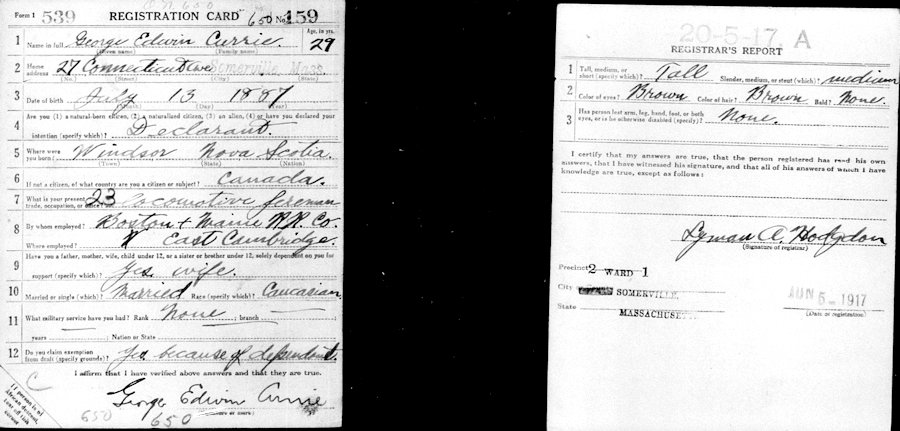 Form 1 539 REGISTRATION CARD 650 No. 159
1 Name in full George Edwin Currie Age, in yrs. 29
(Given name) (Family name)
2 Home address 27 Connecticut Ave Somerville Mass.
(No.) (Street) (City) (State)
3 Date of birth July 13 1887
(Month) (Day) (Year)
4 Are you (1) a natural-born citizen, (2) a naturalized citizen, (3) an alien, (4) or have you declared your
intention (specify which)? Declarant.
5 Where were you born? Windsor Nova Scotia.
(Town) (State) (Nation)
6 If not a citizen, of what country are you a citizen or subject? Canada.
7 What is your present trade, occupation, or office? 23 locomotive fireman
8 By whom employed? Boston + Maine R.R. Co.
Where employed? East Cambridge.
9 Have you a father, mother, wife, child under 12, or a sister or brother under 12, solely dependent on you for
support (specify which)? Yes wife.
10 Married or single (which)? Married Race (specify which)? Caucasian
11 What military service have you had? Rank None ; branch
years ; Nation or State
12 Do you claim exemption from draft (specify grounds)? Yes because of dependent.
I affirm that I have verified above answers and that they are true.
George Edwin Currie
(Signature or mark)
If person is of
African descent,
tear off this
corner
C
650
650
20-5-17 A
REGISTRAR'S REPORT
1 Tall, medium, or short (specify which)? Tall Slender, medium, or stout (which)? medium
2 Color of eyes? Brown Color of hair? Brown Bald? None.
3 Has person lost arm, leg, hand, foot, or both
eyes, or is he otherwise disabled (specify)? None.
I certify that my answers are true, that the person registered has read his own
answers, that I have witnessed his signature, and that all of his answers of which I have
knowledge are true, except as follows:
Lyman A. Hodgdon
(Signature of registrar)
Precinct 2 WARD 1
City SOMERVILLE,
State MASSACHUSE
JUN 5 1917
(Date of registration)